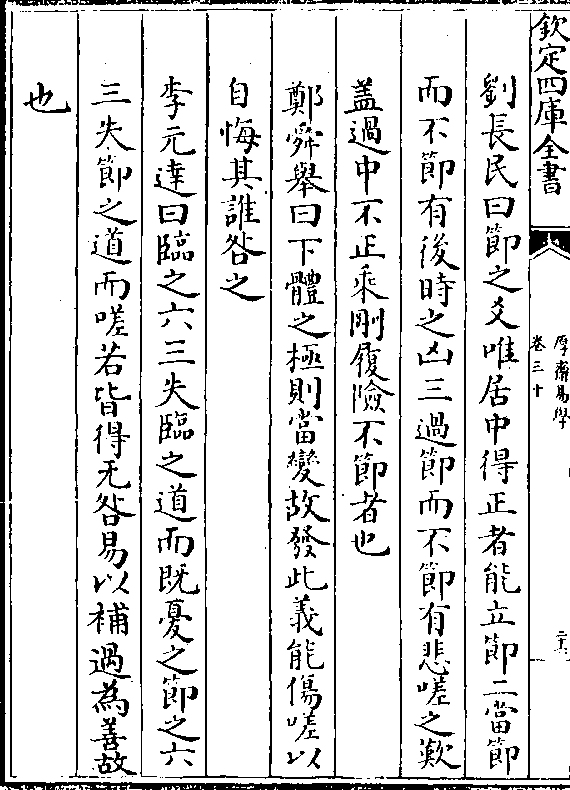 欽定四庫全書
厚齋易學
卷三十
劉長民曰節之爻唯居中得正者能立節二當節
而不節有後時之凶三過節而不節有悲嗟之歎
蓋過中不正乘剛履險不節者也
鄭舜舉曰下體之極則當變故發此義能傷嗟以
自悔其誰咎之
李元達曰臨之六三失臨之道而既憂之節之六
三失節之道而嗟若皆得无咎易以補過為善故
也